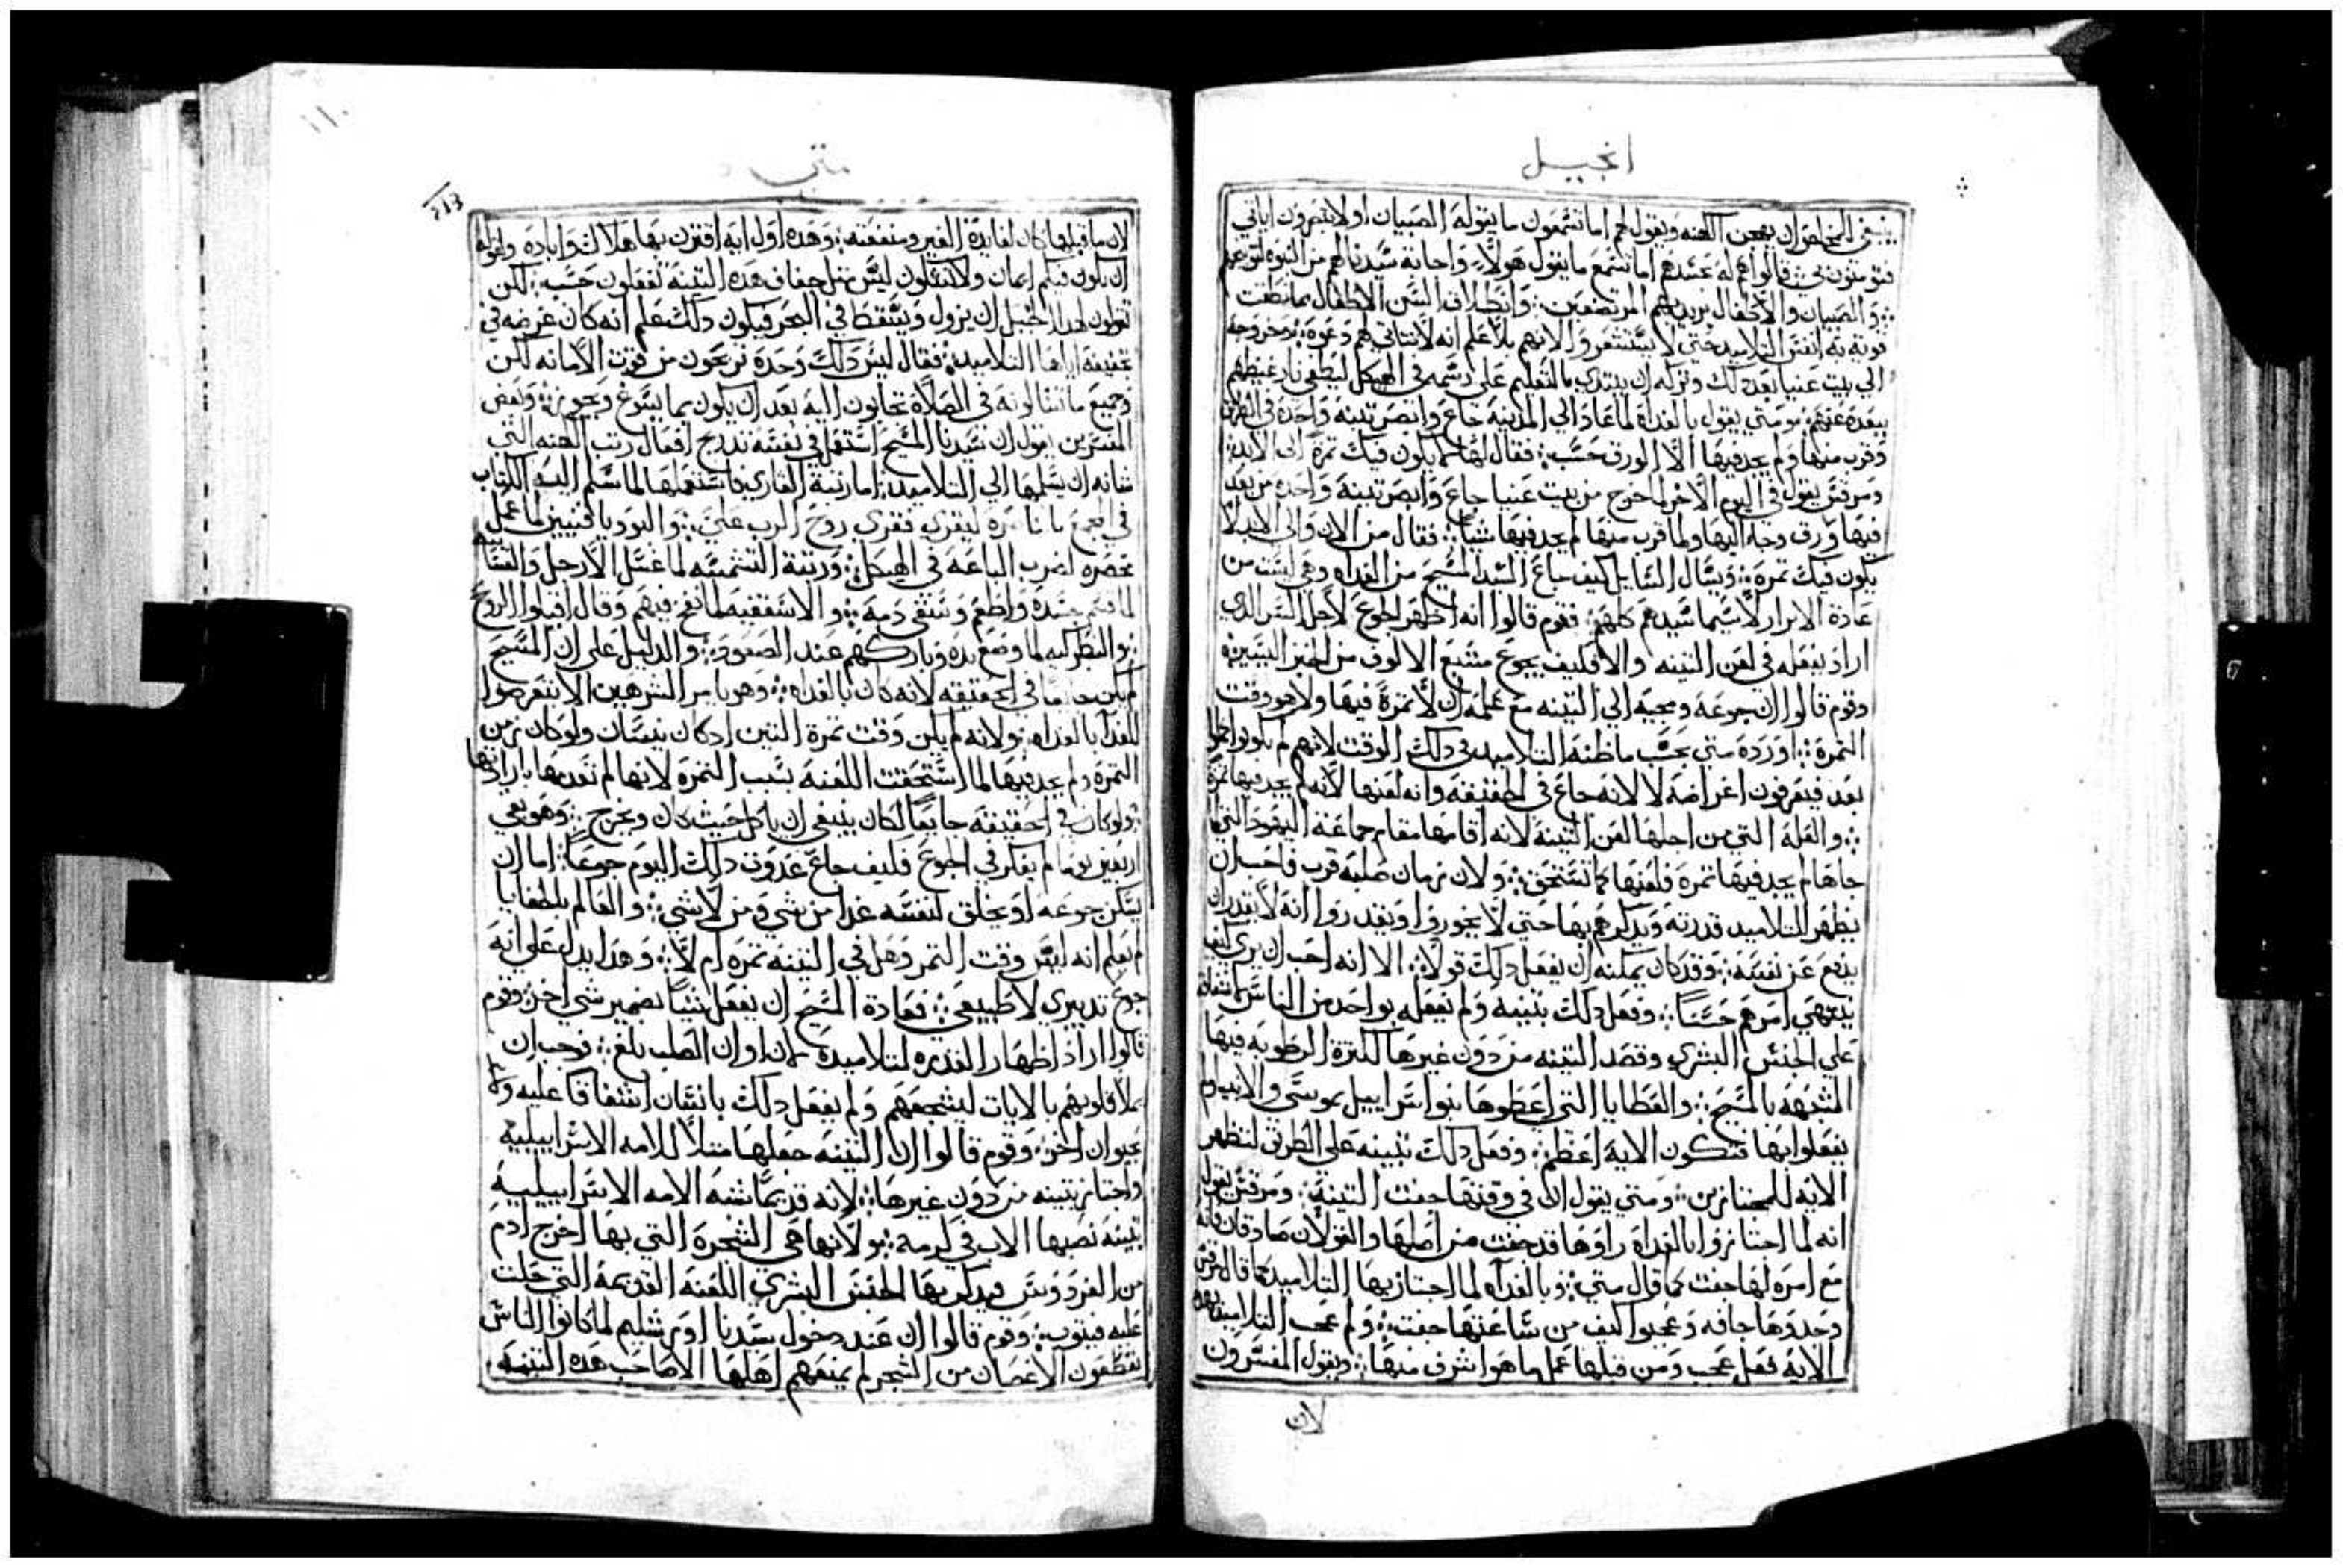 انجيل
فتومنون بي ∴ قالوا هم له عندهم اما تسمع ما يقول هولاء واجابة سيدنا لهم من النبوه
∴ والصبيان والاطفال يريد بهم المرتضعين ∴ وانطلاق السن الاطفال بما نطقت
الي بيت عنيا بعد ذلك وتركه ان يبتدي بالتعليم علي رسمه في الهيكل ليطفي نار غيظهم
ببعده عنهم ∴ ومتي يقول بالغداة لما عاد الي المدينه جاع وابصر تينه واحده في الطريق
وقرب منها ولم يجد فيها الا الورق حسب ∴ فقال لها لا يكون فيك تمرة الي الابد ∴
ومرقس يقول في اليوم الاخر لما خرج من بيت عنيا جاع وابصر تينة واحده من بعد
فيها ورق وجا اليها ولما قرب منها لم يجد فيها شيا ∴ فقال من الان والي الابد لا
يكون فيك تمرة ∴ ويسال السايل كيف جاع السيد المسيح من الغداه وهي ليست من
عادة الابرار لا سيما سيدهم كلهم ∴ فقوم قالوا انه اظهر الجوع لاجل السر الذي
اراد بفعله في لعن التينه والا فكيف يجوع مشبع الالوف من الخبز اليسير ∴
وقوم قالوا ان جوعه ومجيه الي التينه مع علمه ان لا تمرة فيها ولا هو وقت
التمرة ∴ اورده متي بحسب ما ظنه التلاميد في ذلك الوقت لانهم لم يكونوا
بعد فيعرفون اغراضه لا لانه جاع في الحقيقه وانه لعنها لانه لم يجد فيها تمرة
∴ والعله التي من اجلها لعن التينه لانه اقامها مقام جماعة اليهود التي
جاها لم يجد فيها تمره فلعنها كما تستحق ∴ ولان زمان صلبه قرب فاحب ان
يظهر للتلاميد قدرته ويذكرهم بها حتي لا يخوروا ويقدروا انه لا يقدر ان
يدفع عن نفسه ∴ وقد كان يمكنه ان يفعل ذلك قولا ∴ الا انه احب ان يري
ينتهي امرهم حسنا ∴ وفعل ذلك بتينه ولم يفعله بواحد من الناس
علي الجنس البشري وقصد التينه من دون غيرها لكثرة الرطوبه فيها
المتشبهه بالمسيح ∴ والعطايا التي اعطوها بنوا اسراييل بموسي والانبيا
يفعلوا بها فتكون الاية اعظم ∴ وفعل ذلك بتينه علي الطريق لتظهر
الايه للمجتازين ∴ ومتي يقول ان في وقتها جفت التينة ∴ ومرقس يقول
انه لما اجتازوا بالغداه راوها قد جفت من اصلها والقولان صادقان فانه
مع امره لها جفت كما قال متي ∴ وبالغداه لما اجتاز بها التلاميد كما قال مرقس
وجدوها جافه وعجبوا كيف من ساعتها جفت ∴ ولم عجب التلاميد
الايه فعل عجب ومن قبلها عمل ما هو اشرف منها ∴ ويقول المفسرون
لان
متي
لان ما قبلها كان لفايدة الغير ومنفعته ∴ وهذه اول ايه اقترن بها هلاك وابادة وقوله
ان يكون فيكم ايمان ولا تشكون ليس مثل جفاف هذه التينه تفعلون حسب ∴ لكن
تقولون لهذا الجبل ان يزول ويسقط في البحر فيكون ذلك علم انه كان غرضه في
تحقيقه اياها التلاميد ∴ فقال ليس ذلك وحده تربحون من قوة الامانه لكن
وجميع ما تسالونه في الصلاة تجابون اليه بعد ان يكون مما يسوغ ويجوز ∴ وبعض
المفسرين يقول ان سيدنا المسيح استعمل في نفسه تدريج افعال رتب الكهنه التي
شانه ان يسلمها الي التلاميد ∴ اما رتبة القاري فاستعملها لما سلم اليه الكتاب
لما قسم جسده واطعم وسقي دمه ∴ والاسقفيه لما نفخ فيهم وقال اقبلوا الروح
∴ والبطركيه لما وضع يده وباركهم عند الصعود ∴ والدليل علي ان المسيح
لم يكن جايعا في الحقيقه لانه كان بالغداه ∴ وهو يامر الشرهين الا يتعرضوا
للغدا بالغداه ∴ ولانه لم يكن وقت تمرة التين اذ كان نيسان ولو كان زمن
التمره ولم يجد فيها لما استحقت اللعنه بسبب التمره لانها لم تعدمها بارادتها
∴ ولو كان في الحقيقه جايعا لكان ينبغي ان ياكل حيث كان ويخرج ∴ وهو بقي
اربعين يوما لم يفكر في الجوع فكيف جاع غدوة ذلك اليوم جوعا ∴ اما ان
يسكن جوعه او يخلق لنفسه غدا من شي ومن لا شي ∴ والعالم بالخفايا
لم يعلم انه ليس وقت التمر وهل في التينه تمره ام لا ∴ وهذا يدل علي انه
جوع تدبيري لا طبيعي ∴ فعادة المسيح ان يفعل شيا بضمير شي اخر ∴ وقوم
قالوا اراد اظهار القدره لتلاميده لان اوان الصلب بلغ ∴ فوجب ان
يملا قلوبهم بالايات ليشجعهم ولم يفعل ذلك بانسان اشفاقا عليه ولا
بحيوان اخر ∴ وقوم قالوا ان التينه جعلها متلا للامه الاسراييليه
واجتاز بتينه من دون غيرها ∴ لانه قديما شبه الامه الاسراييليه
بتينه نصبها الاب في كرمه ∴ ولانها هي الشجرة التي بها اخرج ادم
من الفردوس فيذكر بها الجنس البشري اللعنه القديمه التي حلت
عليه فيتوب ∴ وقوم قالوا ان عند دخول سيدنا اورشليم لما كانوا الناس
يقطعون الاغصان من الشجر لم يمنعهم اهلها الا صاحب هذه التينه